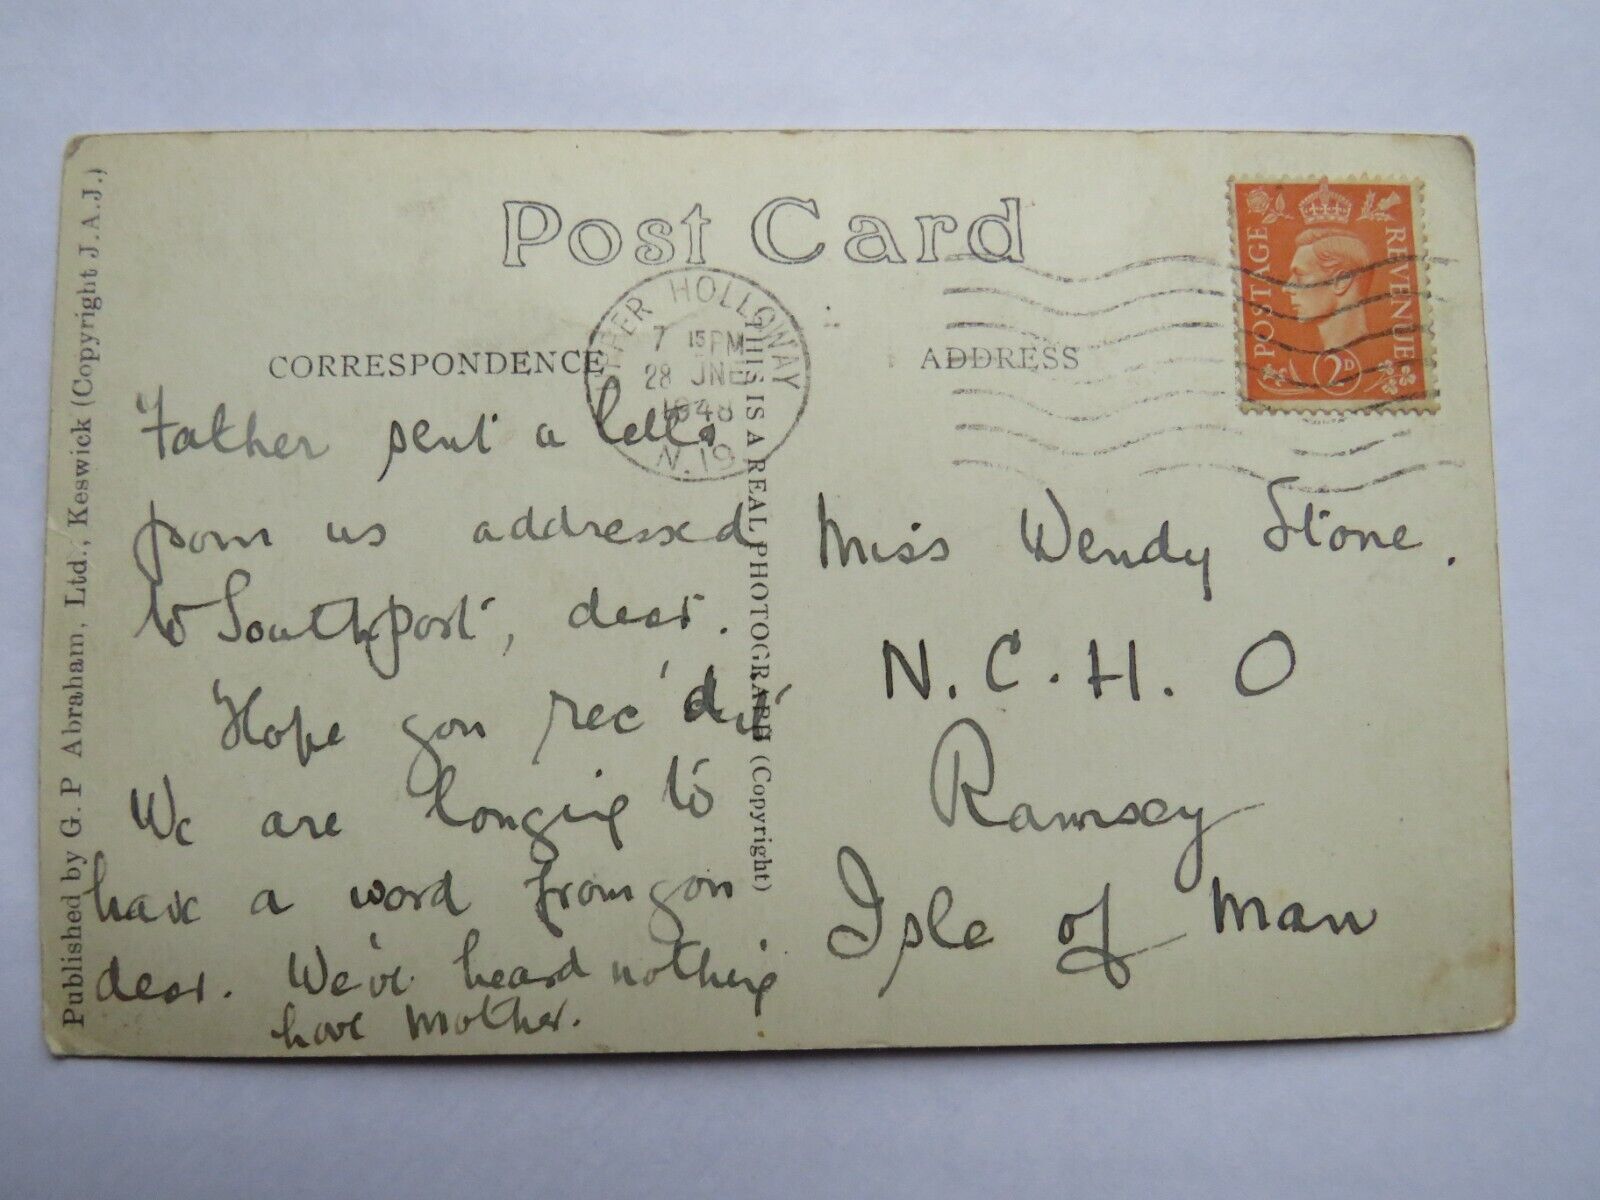 Post Card
CORRESPONDENCE
ADDRESS
UPPER HOLLOWAY
7 15 PM
28 JNE
1948
N.19
POSTAGE
REVENUE
2D
Published by G. P Abraham, Ltd., Keswick (Copyright J.A.J.)
THIS IS A REAL PHOTOGRAPH (Copyright)
Father sent a letter
from us addressed
to Southport, dear.
Hope you rec'd it
We are longing to
have a word from you
dear. We've heard nothing
love Mother.
Miss Wendy Stone.
N.C.H.O
Ramsey
Isle of Man